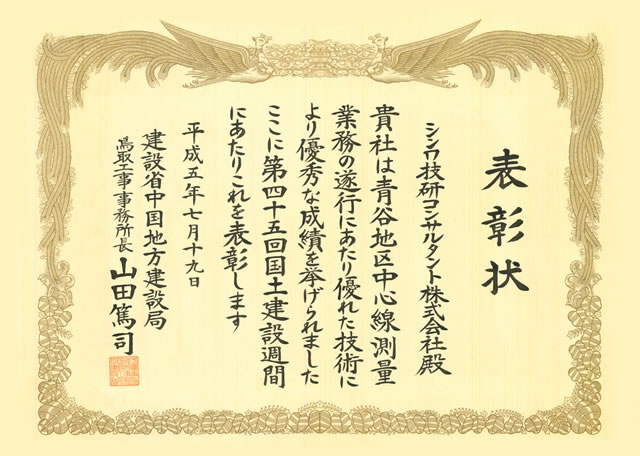 表彰状
シンワ技研コンサルタント株式会社殿
貴社は青谷地区中心線測量
業務の遂行にあたり優れた技術に
より優秀な成績を挙げられました
ここに第四十五回国土建設週間
にあたりこれを表彰します
平成五年七月十九日
建設省中国地方建設局
鳥取工事事務所長 山田篤司